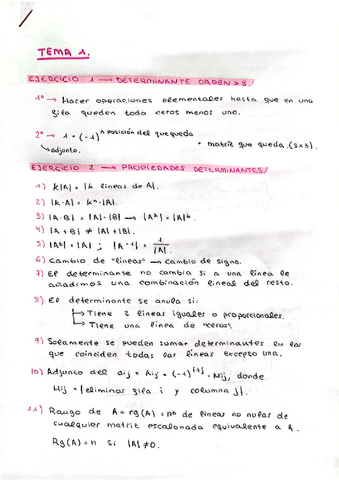 TEMA 1.
EJERCICIO 1 → DETERMINANTE ORDEN ≥ 3.
1º → Hacer operaciones elementales hasta que en una
fila queden todo ceros menos uno.
2º → 1 · (-1)^posición del que queda · matriz que queda. (3×3).
↳ adjunto.
EJERCICIO 2 → PROPIEDADES DETERMINANTES.
1) k|A| = |k lineas de A|.
2) |k·A| = kⁿ·|A|.
3) |A·B| = |A|·|B| → |Aᵏ| = |A|ᵏ.
4) |A+B| ≠ |A|+|B|.
5) |Aᵗ| = |A| ; |A⁻¹| = 1/|A|.
6) Cambio de "lineas" → cambio de signo.
7) El determinante no cambia si a una linea le
añadimos una combinación lineal del resto.
8) El determinante se anula si:
↳ Tiene 2 lineas iguales o proporcionales.
↳ Tiene una linea de "ceros".
9) Solamente se pueden sumar determinantes en los
que coinciden todas las lineas excepto una.
10) Adjunto del aij = Aij = (-1)ⁱ⁺ʲ · Mij, donde
Mij = |eliminas fila i y columna j|.
11) Rango de A = rg(A) = nº de lineas no nulas de
cualquier matriz escalonada equivalente a A.
Rg(A) = n si |A| ≠ 0.